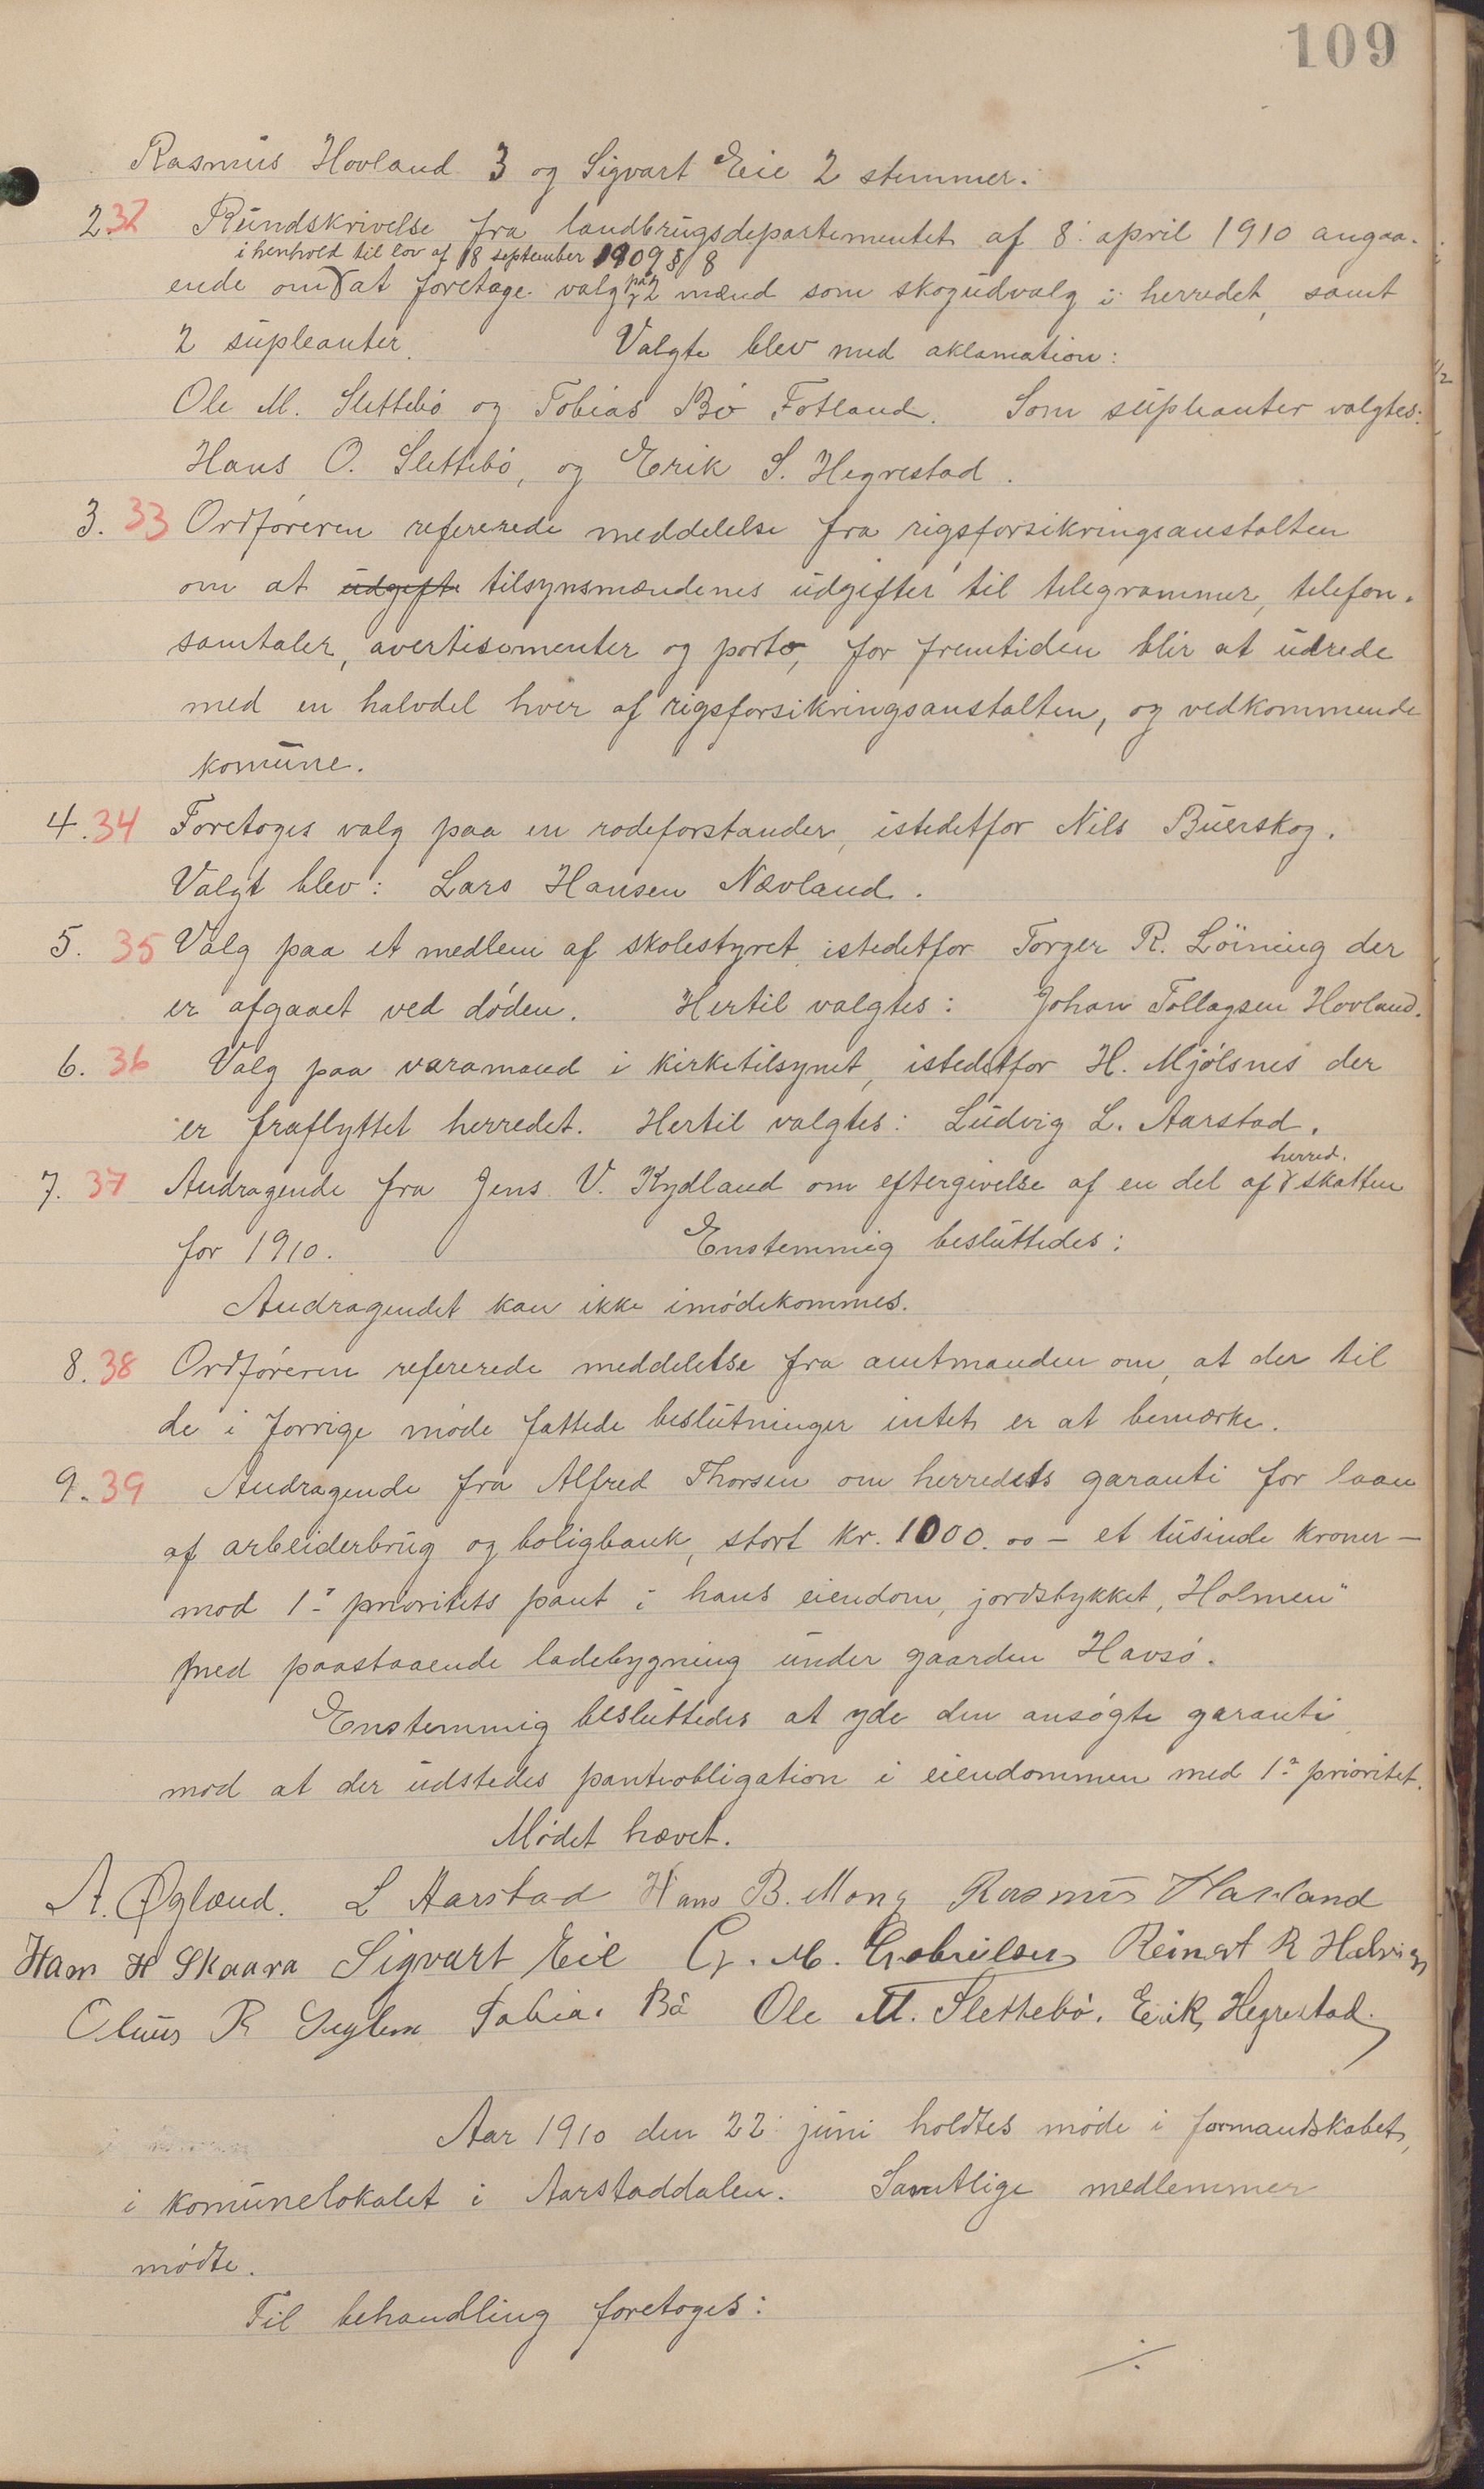 109
Rasmus Hovland 3 og Sigvart Eie 2 stemmer.
2. 32 Rundskrivelse fra landbrugsdepartementet af 8. april 1910 angaa-
i henhold til lov af 18 september 1909 § 8
ende om at foretage valg paa 2 mænd som skogudvalg i herredet, samt
2 supleanter. Valgte blev med aklamation:
Ole M. Slettebø og Tobias Bø Fotland. Som supleanter valgtes:
Hans O. Slettebø, og Erik S. Hegrestad.
3. 33 Ordføreren refererede meddelelse fra rigsforsikringsanstalten
om at udgifte tilsynsmændenes udgifter til telegrammer, telefon-
samtaler, avertisementer og porto, for fremtiden blir at udrede
med en halvdel hver af rigsforsikringsanstalten, og vedkommende
komune.
4. 34 Foretoges valg paa en rodeforstander, istedetfor Nils Buerskog.
Valgt blev: Lars Hansen Nævland.
5. 35 Valg paa et medlem af skolestyret istedetfor Torger R. Løining der
er afgaaet ved døden. Hertil valgtes: Johan Tollagsen Hovland.
6. 36 Valg paa varamand i kirketilsynet, istedetfor H. Mjølsnes der
er fraflyttet herredet. Hertil valgtes: Ludvig L. Aarstad.
herred.
7. 37 Andragende fra Jens V. Kydland om eftergivelse af en del af skatten
for 1910. Enstemmig besluttedes:
Andragendet kan ikke imødekommes.
8. 38 Ordføreren refererede meddelelse fra amtmanden om, at der til
de i forrige møde fattede beslutninger intet er at bemærke.
9. 39 Andragende fra Alfred Thorsen om herredets garanti for laan
af arbeiderbrug og boligbank, stort kr. 1000.00 – et tusinde kroner –
mod 1ste prioritets pant i hans eiendom, jordstykket „Holmen"
med paastaaende ladebygning under gaarden Havsø.
Enstemmig besluttedes at yde den ansøgte garanti
mod at der udstedes panteobligation i eiendommen med 1ste prioritet.
Mødet hævet.
A. Øglænd. L Aarstad Hans B. Mong Rasmus Havland
Hans H Skaara Sigvart Eie G. M. Gabrielsen Reinert R
Oluus R Seglem Tobias Bø Ole M. Slettebø. Erik Hegrestad.
Aar 1910 den 22. juni holdtes møde i formandskabet,
i komunelokalet i Aarstaddalen. Samtlige medlemmer
mødte.
Til behandling foretoges: